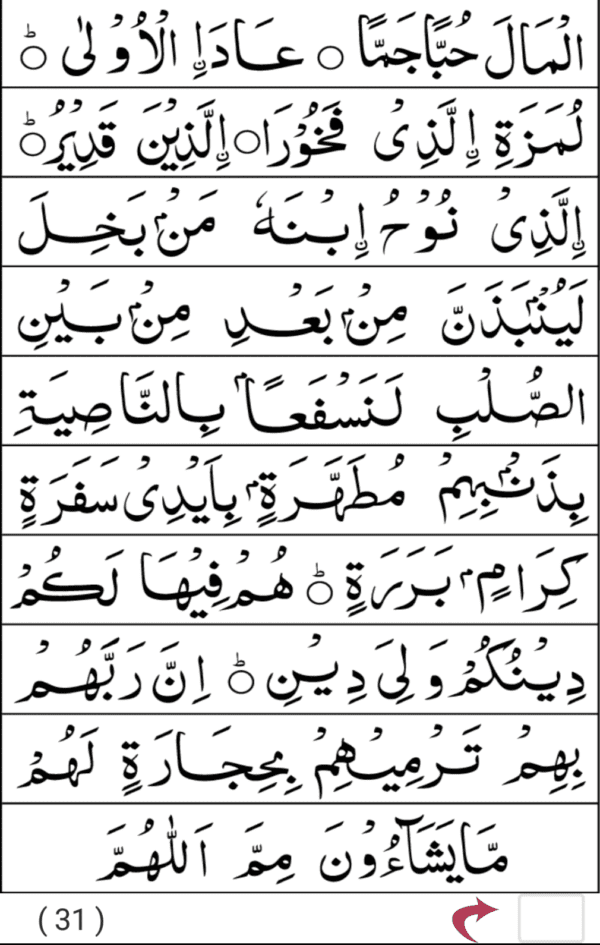 الْمَالَ حُبًّا جَمًّا ○ عَادَاِۨ الْاُوْلٰى ○ؕ
لُمَزَةِ ۨالَّذِىْ فَخُوْرَا○ ۨالَّذِيْنَ قَدِيْرُ○ؕ
ۨالَّذِىْ نُوْحُ ۨابْنَهٗ مَنْۢ بَخِلَ
لَيُنْۢبَذَنَّ مِنْۢ بَعْدِ مِنْۢ بَيْنِ
الصُّلْبِ لَنَسْفَعًاۢ بِالنَّاصِيَةِ
بِذَنْۢبِهِمْ مُطَهَّرَةٍۢ بِاَيْدِىْ سَفَرَةٍ
كِرَامٍۢ بَرَرَةٍ ○ؕ هُمْ فِيْهَا لَكُمْ
دِيْنُكُمْ وَلِىَ دِيْنِ ○ؕ اِنَّ رَبَّهُمْ
بِهِمْ تَرْمِيْهِمْ بِحِجَارَةٍ لَهُمْ
مَّا يَشَآءُوْنَ مِمَّ اَللّٰهُمَّ
( 31 )